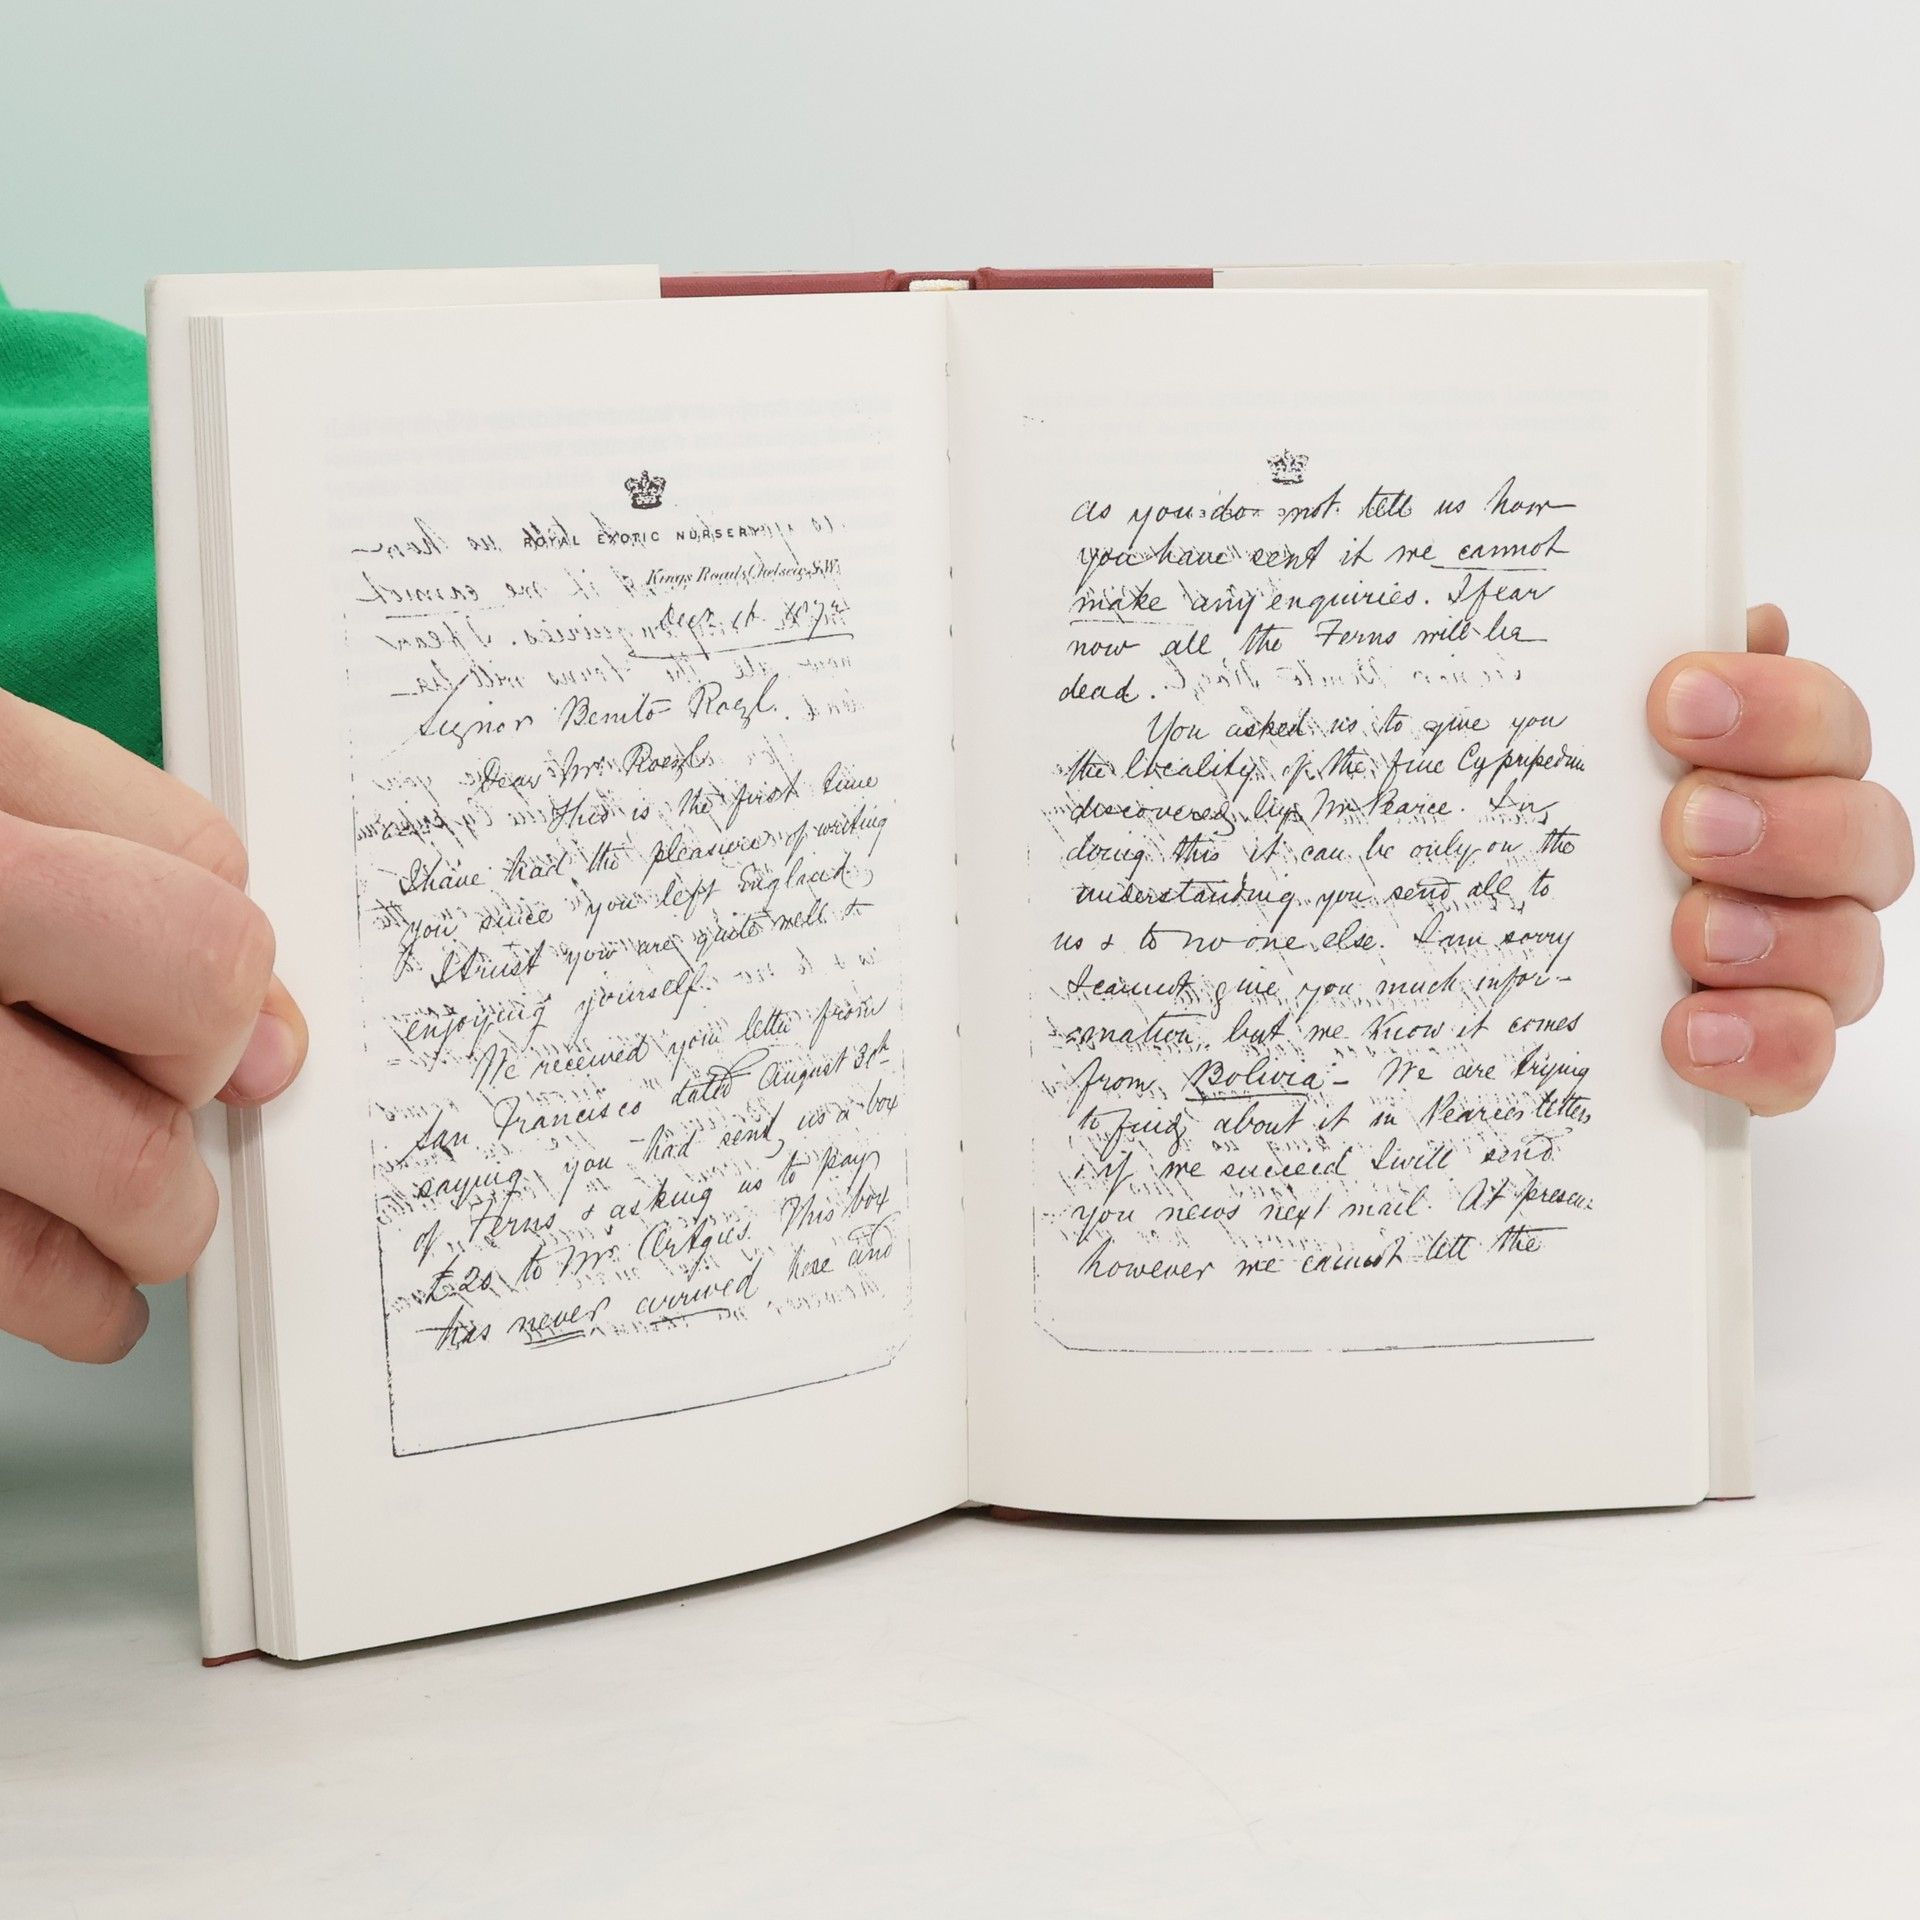 ROYAL EXOTIC NURSERY
Kings Road, Chelsea, S.W.
Signor Benito Roezl.
Dear Mr Roezl
This is the first time
I have had the pleasure of writing
you since you left England,
I trust you are quite well &
enjoying yourself.
We received your letter from
San Francisco dated August 30th
saying you had send us a box
of Ferns & asking us to pay
£20 to Mr Ortgies. This box
has never arrived here and
as you do not tell us how
you have sent it we cannot
make any enquiries. I fear
now all the Ferns will be
dead.
You asked us to give you
the locality of the fine Cypripedium
discovered by Mr Pearce. In
doing this it can be only on the
understanding you send all to
us & to no one else. I am sorry
I cannot give you much infor-
mation, but we know it comes
from Bolivia - We are trying
to find about it in Pearces letters
if we succeed I will send
you news next mail. At present
however we cannot tell the